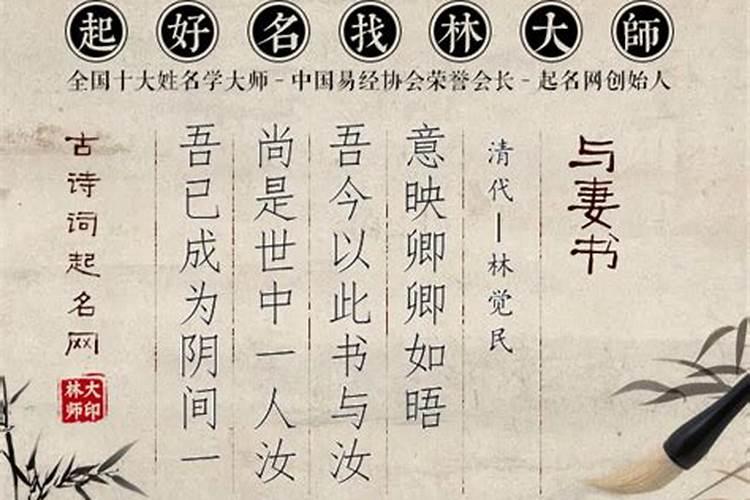 起好名找林大師
全国十大姓名学大师-中国易经协会荣誉会长-起名网创始人
与妻书
清代—林觉民
意映卿卿如晤
吾今以此书与汝
尚是世中一人汝
吾已成为阴间一
古诗词起名网
大印
林师